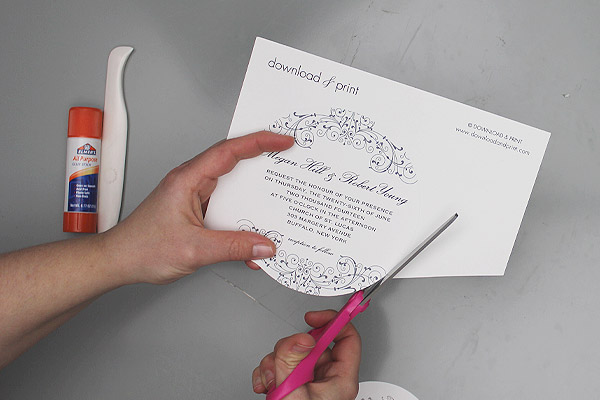 download & print
© DOWNLOAD & PRINT
www.downloadandprint.com
Megan Hill & Robert Young
REQUEST THE HONOUR OF YOUR PRESENCE
ON THURSDAY, THE TWENTY-SIXTH OF JUNE
TWO THOUSAND FOURTEEN
AT FIVE O'CLOCK IN THE AFTERNOON
CHURCH OF ST. LUCAS
303 MARGERY AVENUE
BUFFALO, NEW YORK
reception to follow
ELMER'S
All Purpose
GLUE STICK